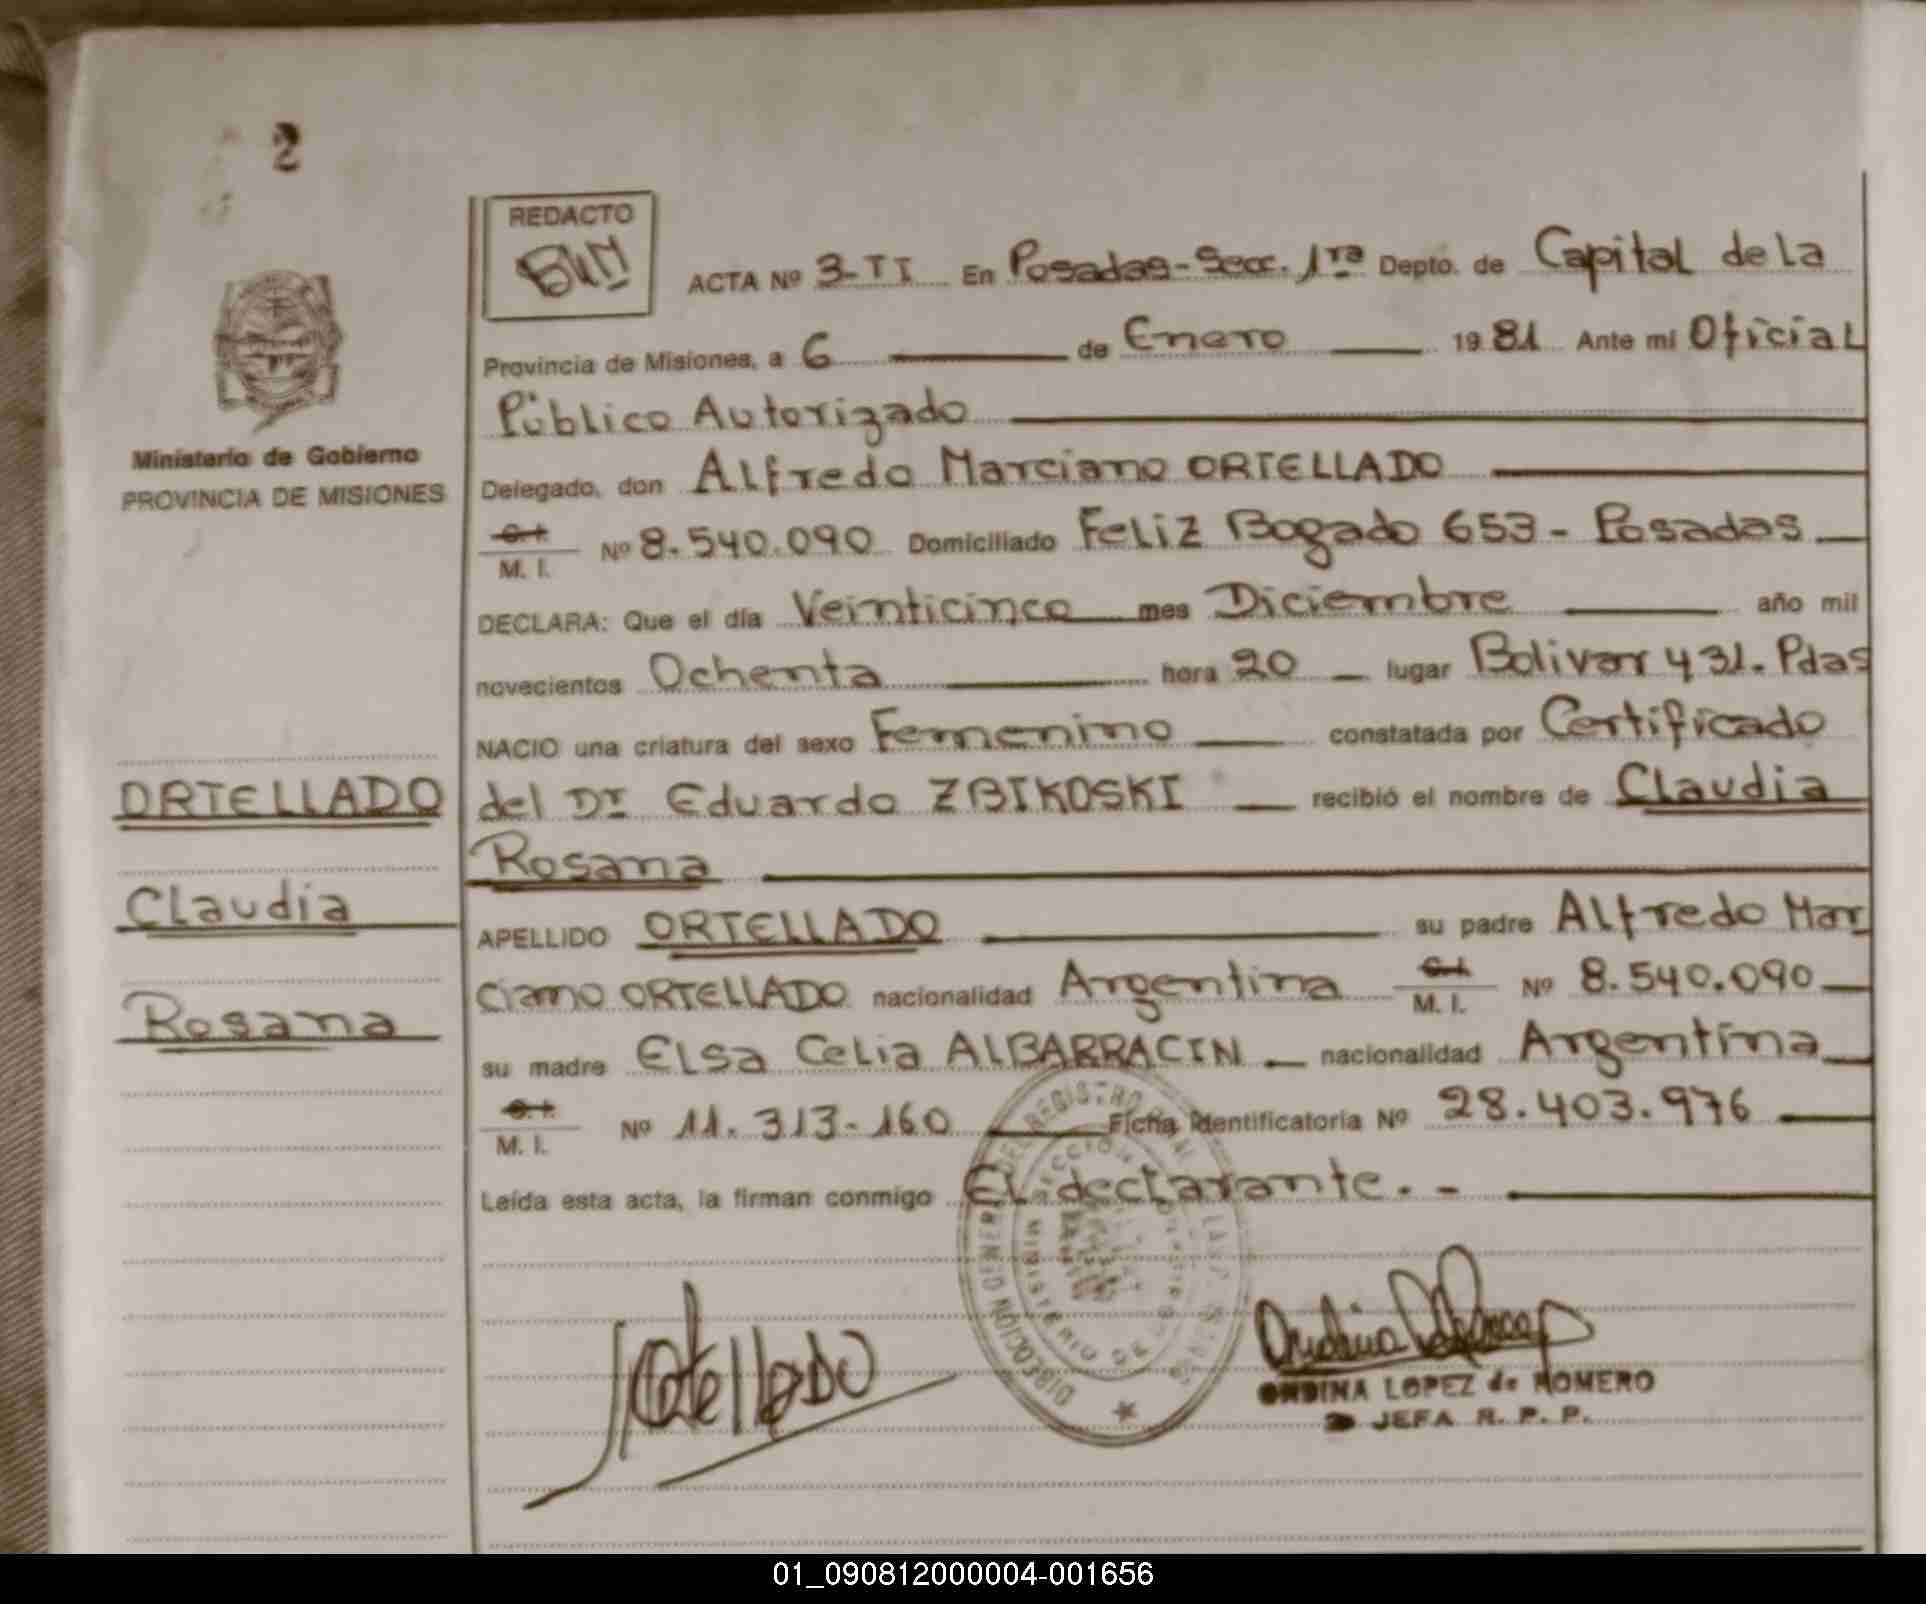 2
REDACTO
Ministerio de Gobierno
PROVINCIA DE MISIONES
ACTA Nº 3-TI En Posadas-Secc. 1ra Depto. de Capital de La
Provincia de Misiones, a 6 de Enero 1981 Ante mi Oficial
Público Autorizado
Delegado, don Alfredo Marciano ORTELLADO
C.I. M. I. Nº 8.540.090 Domiciliado Feliz Bogado 653 - Posadas
DECLARA: Que el día Veinticinco mes Diciembre año mil
novecientos Ochenta hora 20 lugar Bolivar 431. Pdas
NACIO una criatura del sexo Femenino constatada por Certificado
del Dr Eduardo ZBIKOSKI recibió el nombre de Claudia
Rosana
APELLIDO ORTELLADO su padre Alfredo Mar
ciano ORTELLADO nacionalidad Argentina C.I. M. I. Nº 8.540.090
su madre Elsa Celia ALBARRACIN nacionalidad Argentina
C.I. M. I. Nº 11.313.160 Ficha Identificatoria Nº 28.403.976
Leída esta acta, la firman conmigo El declarante. -
ORTELLADO
Claudia
Rosana
Ortellado
ONDINA LOPEZ de ROMERO
JEFA R. P. P.
01_090812000004-001656